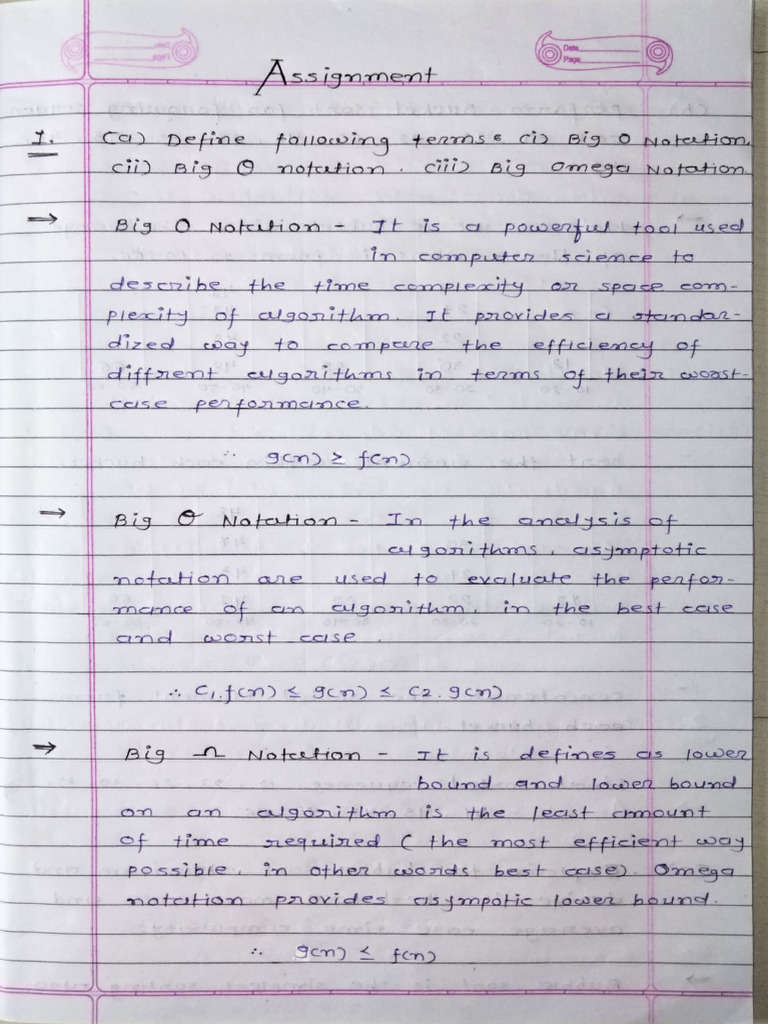 Date
Page
Assignment
1. (a) Define following terms: (i) Big O Notation,
(ii) Big Θ notation. (iii) Big Omega Notation.
→ Big O Notation - It is a powerful tool used
in computer science to
describe the time complexity or space com-
plexity of algorithm. It provides a standar-
dized way to compare the efficiency of
diffrent algorithms in terms of their worst-
case performance.
∴ g(n) ≥ f(n)
→ Big Θ Notation - In the analysis of
algorithms, asymptotic
notation are used to evaluate the perfor-
mance of an algorithm, in the best case
and worst case.
∴ C1.f(n) ≤ g(n) ≤ C2.g(n)
→ Big Ω Notation - It is defines as lower
bound and lower bound
on an algorithm is the least amount
of time required ( the most efficient way
possible, in other words best case). Omega
notation provides asympotic lower bound.
∴ g(n) ≤ f(n)